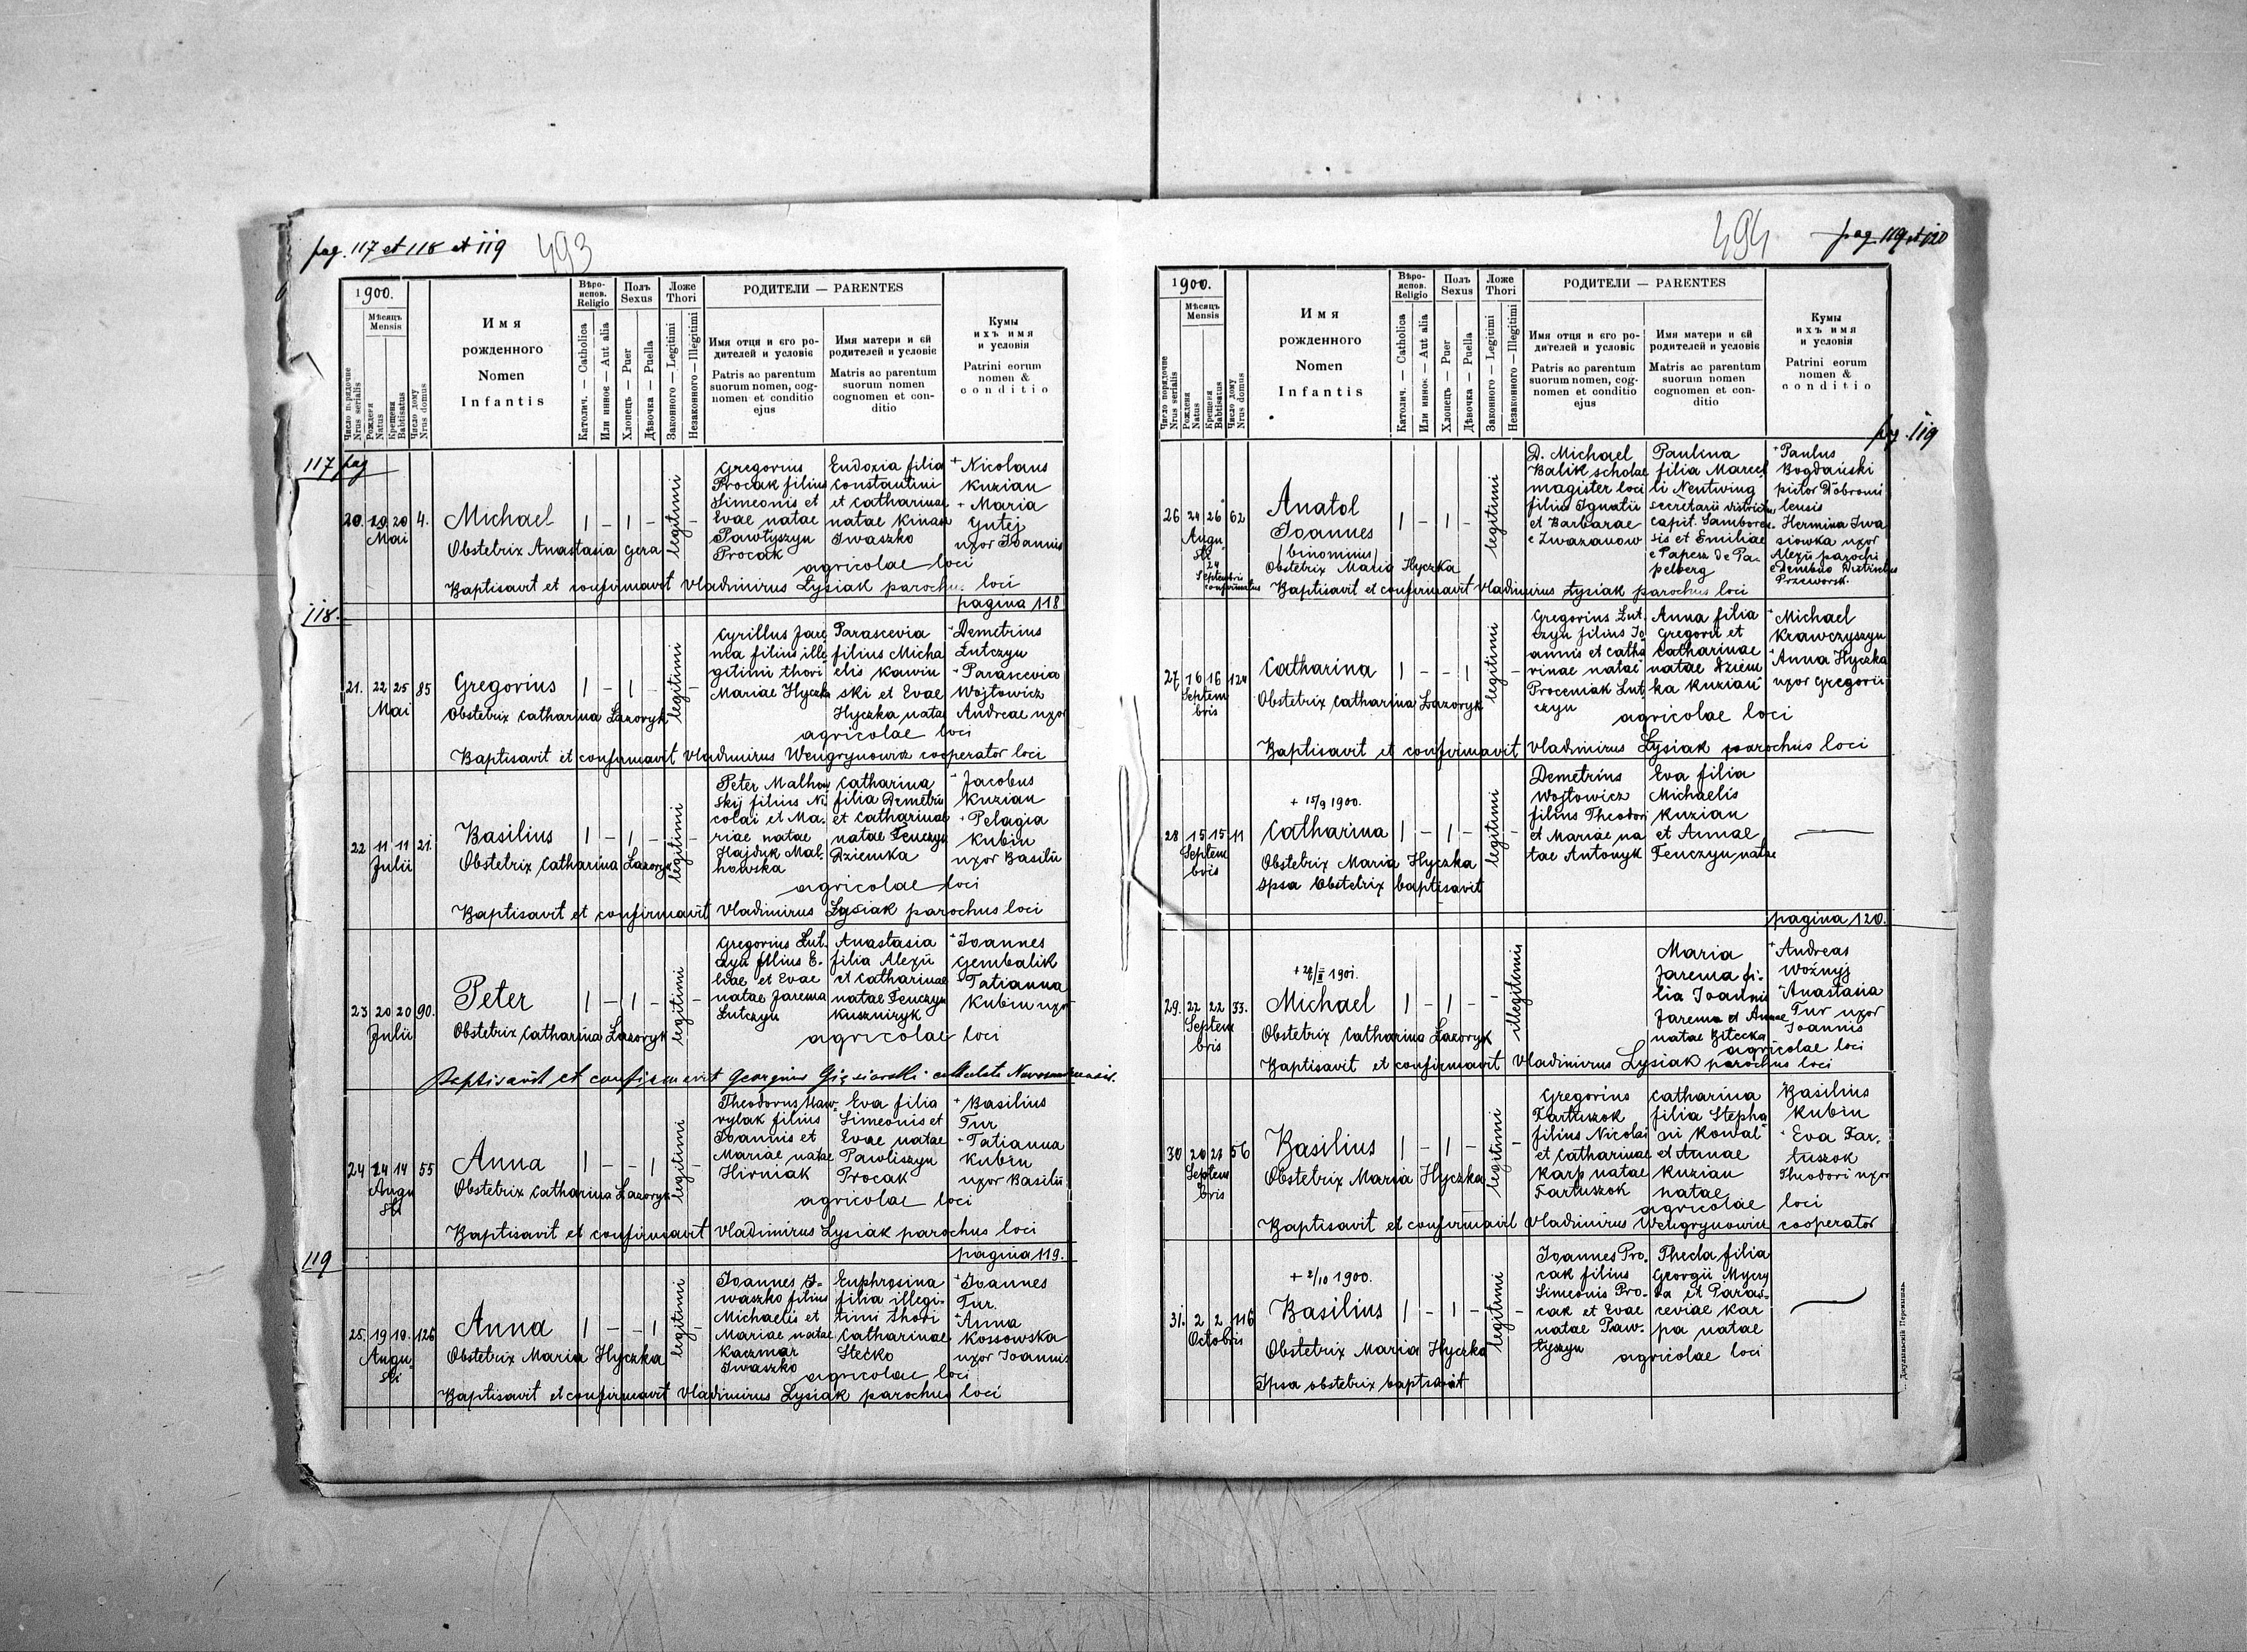 pag. 117 et 118 et 119
493
1900.
Мѣсяць
Mensis
Число порядочне
Nrus serialis
Рожденя
Natus
Крещеня
Babtisatus
Число дому
Nrus domus
Имя
рожденного
Nomen
Infantis
Вѣро-
испов.
Religio
Католич. — Catholica
Или инноє — Aut alia
Полъ
Sexus
Хлопець — Puer
Дѣвочка — Puella
Ложе
Thori
Законного — Legitimi
Незаконного — Illegitimi
РОДИТЕЛИ — PARENTES
Имя отця и єго ро-
дителей и условіє
Patris ac parentum
suorum nomen, cog-
nomen et conditio
ejus
Имя матери и єй
родителей и условіє
Matris ac parentum
suorum nomen
cognomen et con-
ditio
Кумы
ихъ имя
и условія
Patrini eorum
nomen &
conditio
117 pag
20. 19 20 4.
Mai
Michael
1 – 1 –
legitimi
–
Obstetrix Anastasia Gera
Gregorius
Procak filius
Simeonis et
Evae natae
Pawłyszyn
Procak
Eudoxia filia
Constantini
et Catharinae
natae Kinasz
Iwaszko
+ Nicolaus
Kuzian
+ Maria
Gutej
uxor Joannis
agricolae loci
Baptisavit et confirmavit Vladimirus Łysiak parochus loci
118.
pagina 118
21. 22 25 85
Mai
Gregorius
1 – 1 –
legitimi
–
Obstetrix Catharina Łazoryk.
Cyrillus Jare
ma filius ille
gitimi thori
Mariae Hyczka
Parascevia
filius Micha
elis Kawin
ski et Evae
Hyczka natae
+ Demetrius
Łutczyn
+ Parascevia
Wojtowicz
Andreae uxor
agricolae loci
Baptisavit et confirmavit Vladimirus Wengrynowicz cooperator loci
22 11 11 21.
Julii
Basilius
1 – 1 –
legitimi
–
Obstetrix Catharina Łazoryk
Peter Malhow
skij filius Ni
colai et Ma.
riae natae
Hajduk Mal.
howska
Catharina
filia Demetrii
et Catharinae
natae Fenczyn
Dziemka
+ Jacobus
Kuzian
+ Pelagia
Kubin
uxor Basilii
agricolae loci
Baptisavit et confirmavit Vladimirus Łysiak parochus loci
23 20 20 90.
Julii
Peter
1 – 1 –
legitimi
–
Obstetrix Catharina Łazoryk
Gregorius Łut.
czyn filius E.
liae et Evae
natae Jarema
Łutczyn
Anastasia
filia Alexii
et Catharinae
natae Fenczyn
Kuszniryk
+ Joannes
Gembalik
+ Tatianna
Kubin uxor
agricolae loci
Baptisavit et confirmavit Georgius
24 14 14 55
Augu
sti
Anna
1 – – 1
legitimi
–
Obstetrix Catharina Łazoryk
Theodorus Haw.
rylak filius
Joannis et
Mariae natae
Hirniak
Eva filia
Simeonis et
Evae natae
Pawliszyn
Procak
+ Basilius
Tur
+ Tatianna
Kubin
uxor Basilii
agricolae loci
Baptisavit et confirmavit Vladimirus Łysiak parochus loci
119
pagina 119.
25. 19 19. 126
Augu
sti
Anna
1 – – 1
legitimi
–
Obstetrix Maria Hyczka
Joannes I-
waszko filius
Michaelis et
Mariae natae
Kaczmar
Iwaszko
Euphrosina
filia illegi-
timi thori
Catharinae
Stećko
+ Joannes
Tur.
+ Anna
Kossowska
uxor Joannis
agricolae loci
Baptisavit et confirmavit Vladimirus Łysiak parochus loci
494
pag 119 et 120
1900.
Мѣсяць
Mensis
Число порядочне
Nrus serialis
Рожденя
Natus
Крещеня
Babtisatus
Число дому
Nrus domus
Имя
рожденного
Nomen
Infantis
Вѣро-
испов.
Religio
Католич. — Catholica
Или инноє — Aut alia
Полъ
Sexus
Хлопець — Puer
Дѣвочка — Puella
Ложе
Thori
Законного — Legitimi
Незаконного — Illegitimi
РОДИТЕЛИ — PARENTES
Имя отця и єго ро-
дителей и условіє
Patris ac parentum
suorum nomen, cog-
nomen et conditio
ejus
Имя матери и єй
родителей и условіє
Matris ac parentum
suorum nomen
cognomen et con-
ditio
Кумы
ихъ имя
и условія
Patrini eorum
nomen &
conditio
pag. 119
26 24 26 62
Augu
sti
24
Septembris
confirmatus
Anatol
Joannes
/binominus/
1 – 1 –
legitimi
Obstetrix Maria Hyczka
D. Michael
Balik scholae
magister loci
filius Ignatii
et Barbarae
e Zwazanow
Paulina
filia Marcel
li Nentwing
secretarii districtus
capit. Sambore.
sis et Emiliae
e Papesz de Pa-
pelberg
+ Paulus
Bogdański
pictor Dobromi
lensis
Hermina Iwa
siowka uxor
Alexii parochi
e Dembno Districtus
Przeworsk.
Baptisavit et confirmavit Vladimirus Łysiak parochus loci
27 16 16 124
Septem
bris
Catharina
1 – – 1
legitimi
–
Obstetrix Catharina Łazoryk
Gregorius Łut.
czyn filius Jo
annis et Catha
rinae natae
Proceniak Łut
czyn
Anna filia
Gregorii et
Catharinae
natae Dziem
ka Kuzian
+ Michael
Krawczyszyn
+ Anna Hyczka
uxor Gregorii
agricolae loci
Baptisavit et confirmavit Vladimirus Łysiak parochus loci
28 15 15 11
Septem
bris
+ 15/9 1900.
Catharina
1 – 1 –
legitimi
–
Obstetrix Maria Hyczka
Ipsa Obstetrix baptisavit
Demetrius
Wojtowicz
filius Theodori
et Mariae na
tae Antonyk
Eva filia
Michaelis
Kuzian
et Annae
Fenczyn natae
pagina 120.
29. 22 22 33.
Septem
bris
1901.
Michael
1 – 1 –
illegitimi
Obstetrix Catharina Łazoryk
Maria
Jarema fi-
lia Joannis
Jarema et Annae
natae Bitecka
+ Andreas
Woźnyj
+ Anastasia
Tur uxor
Joannis
agricolae loci
Baptisavit et confirmavit Vladimirus Łysiak parochus loci
30 20 23 56
Septem
bris
Basilius
1 – 1 –
legitimi
–
Obstetrix Maria Hyczka
Gregorius
Fartuszok
filius Nicolai
et Catharinae
Karp natae
Fartuszok
Catharina
filia Stepha
ni Kowal
et Annae
Kuzian
natae
Basilius
Kubin
+ Eva Far.
tuszok
Theodori uxor
agricolae loci
Baptisavit et confirmavit Vladimirus Wengrynowicz cooperator
31. 2 2 116
Octobris
+ 2/10 1900.
Basilius
1 – 1 –
legitimi
–
Obstetrix Maria Hyczka
Ipsa obstetrix baptsavit
Joannes Pro.
cak filius
Simeonis Pro-
cak et Evae
natae Paw.
łyszyn
Thecla filia
Georgii Mycry
da et Paras-
ceviae Kar
pa natae
agricolae loci